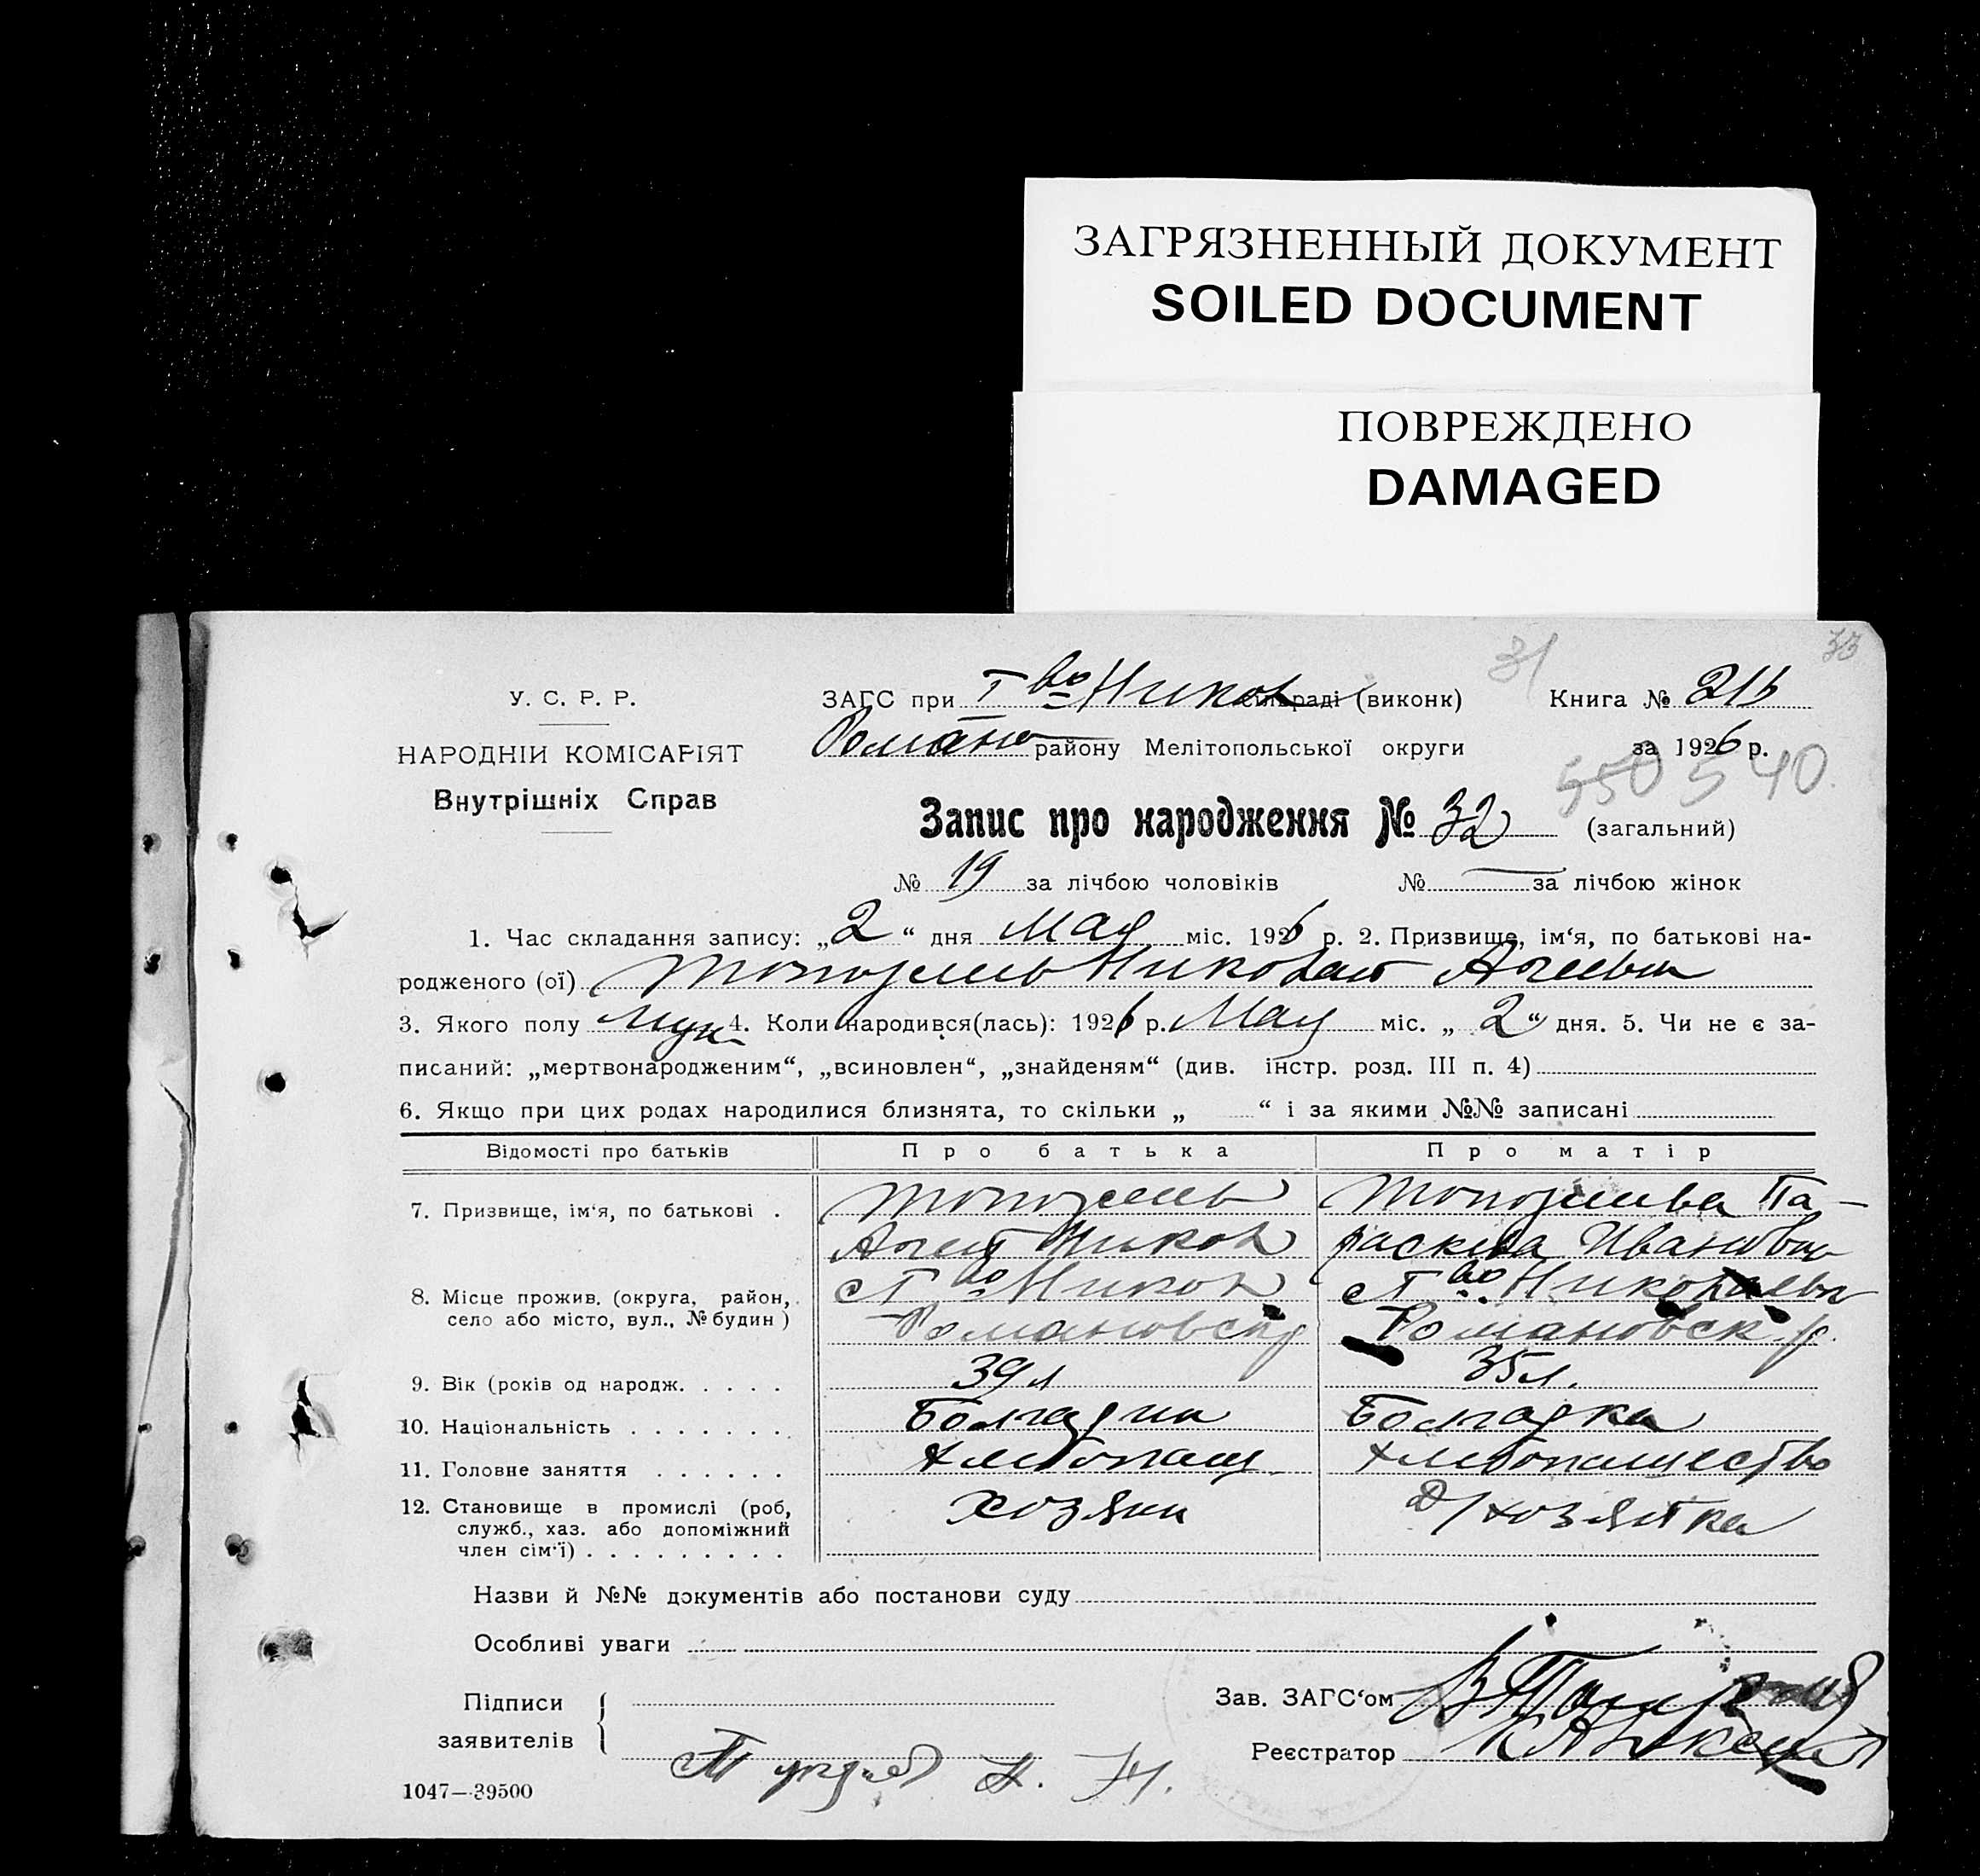 ЗАГРЯЗНЕННЫЙ ДОКУМЕНТ
SOILED DOCUMENT
ПОВРЕЖДЕНО
DAMAGED
31 33
У. С. Р. Р. ЗАГС при сільраді (виконк) Книга №
НАРОДНІЙ КОМІСАРІЯТ Романо району Мелітопольської округи за 1926 р.
550 540.
Внутрішніх Справ
Запис про народження № 32 (загальний)
№ 19 за лічбою чоловіків № — за лічбою жінок
1. Час складання запису: „2“ дня Мая міс. 1926 р. 2. Призвище, ім‘я, по батькові на-
родженого (ої) Николай Агеевич
3. Якого полу муж 4. Коли народився(лась): 1926 р. Мая міс. „2“ дня. 5. Чи не є за-
писаний: „мертвонародженим“, „всиновлен“, „знайденям“ (див. інстр. розд. III п. 4)
6. Якщо при цих родах народилися близнята, то скільки „ “ і за якими №№ записані
Відомості про батьків Про батька Про матір
7. Призвище, ім‘я, по батькові . Па-
Агей Никол раскева Ивановна
8. Місце прожив. (округа, район, Никол Николаевка
село або місто, вул., № будин ) Романовск р Романовск. р.
9. Вік (років од народж. . . . . 39 л 35 л.
10. Національність . . . . . . . Болгарин Болгарка
11. Головне заняття . . . . . . Хлебопаш. Хлебопашество
12. Становище в промислі (роб, хозяин д/хозяйка
служб., хаз. або допоміжний
член сім‘ї) . . . . . . . . .
Назви й №№ документів або постанови суду
Особливі уваги
Підписи Зав. ЗАГС‘ом
заявителів Реєстратор
1047—39500